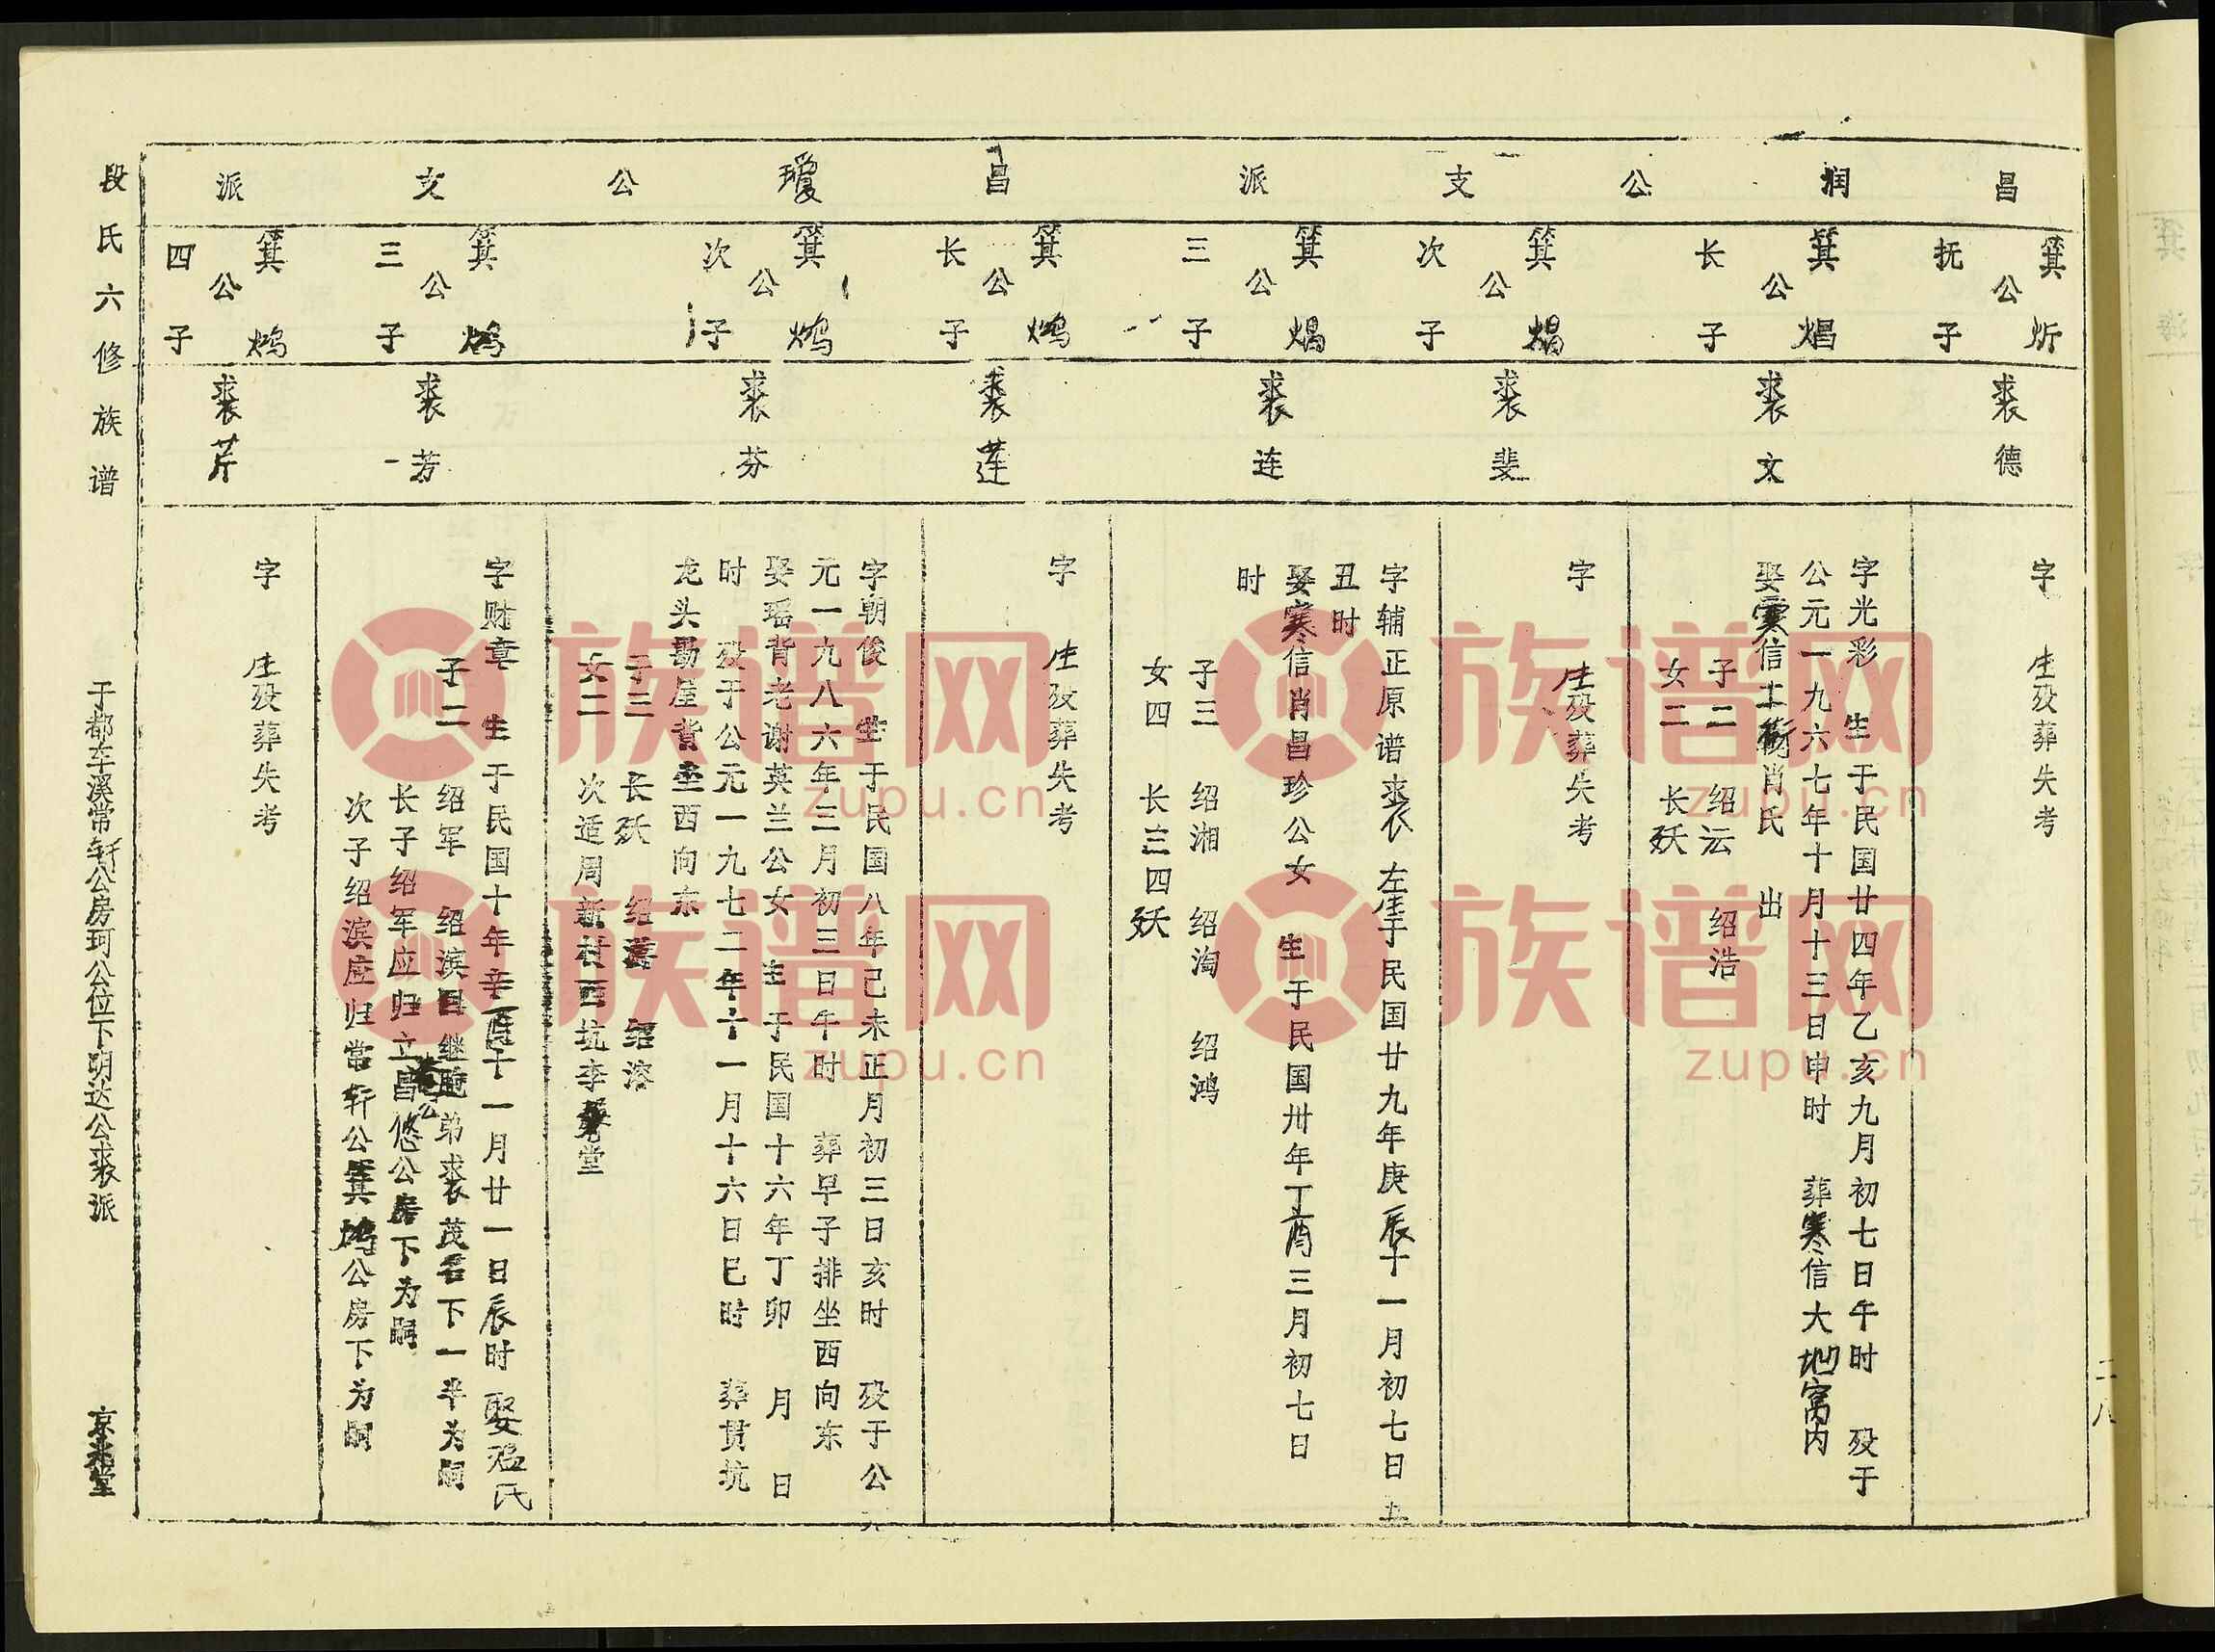 昌润公支派
昌瓊公支派
箕炘公抚子
裘德
字 生殁葬失考
箕焻公长子
裘文
字光彩 生于民国廿四年乙亥九月初七日午时 殁于
公元一九六七年十月十三日申时 葬寒信大地窝内
娶寒信工街肖氏 出
子二 绍沄 绍浩
女二 长殀
箕焻公次子
裘斐
字 生殁葬失考
箕焻公三子
裘连
字辅正原谱裘 生于民国廿九年庚辰十一月初七日
丑时
娶寒信肖昌珍公女 生于民国卅年丁酉三月初七日
时
子三 绍湘 绍淘 绍鸿
女四 长三四殀
箕公长子
裘莲
字 生殁葬失考
箕公次子
裘芬
字朝俊 生于民国八年己未正月初三日亥时 殁于公
元一九八六年三月初三日午时 葬早子排坐西向东
娶瑶背老谢英兰公女 生于民国十六年丁卯 月 日
时 殁于公元一九七二年十一月十六日巳时 葬贯坑
龙头勘屋背坐西向东
子三 长殀 绍 绍溶
女二 次适周新村西坑李堂
箕公三子
裘芳
字财章 生于民国十年辛酉十一月廿一日辰时 娶氏
子二 绍军 绍滨回继胞弟裘茂名下一半为嗣
长子绍军应归立昌悠公房下为嗣
次子绍滨应归常轩公箕公房下为嗣
箕公四子
裘芹
字 生殁葬失考
段氏六修族谱
于都车溪常轩公房珂公位下明达公裘派
京兆堂
二八
族谱网
zupu.cn
族谱网
zupu.cn
族谱网
zupu.cn
族谱网
zupu.cn